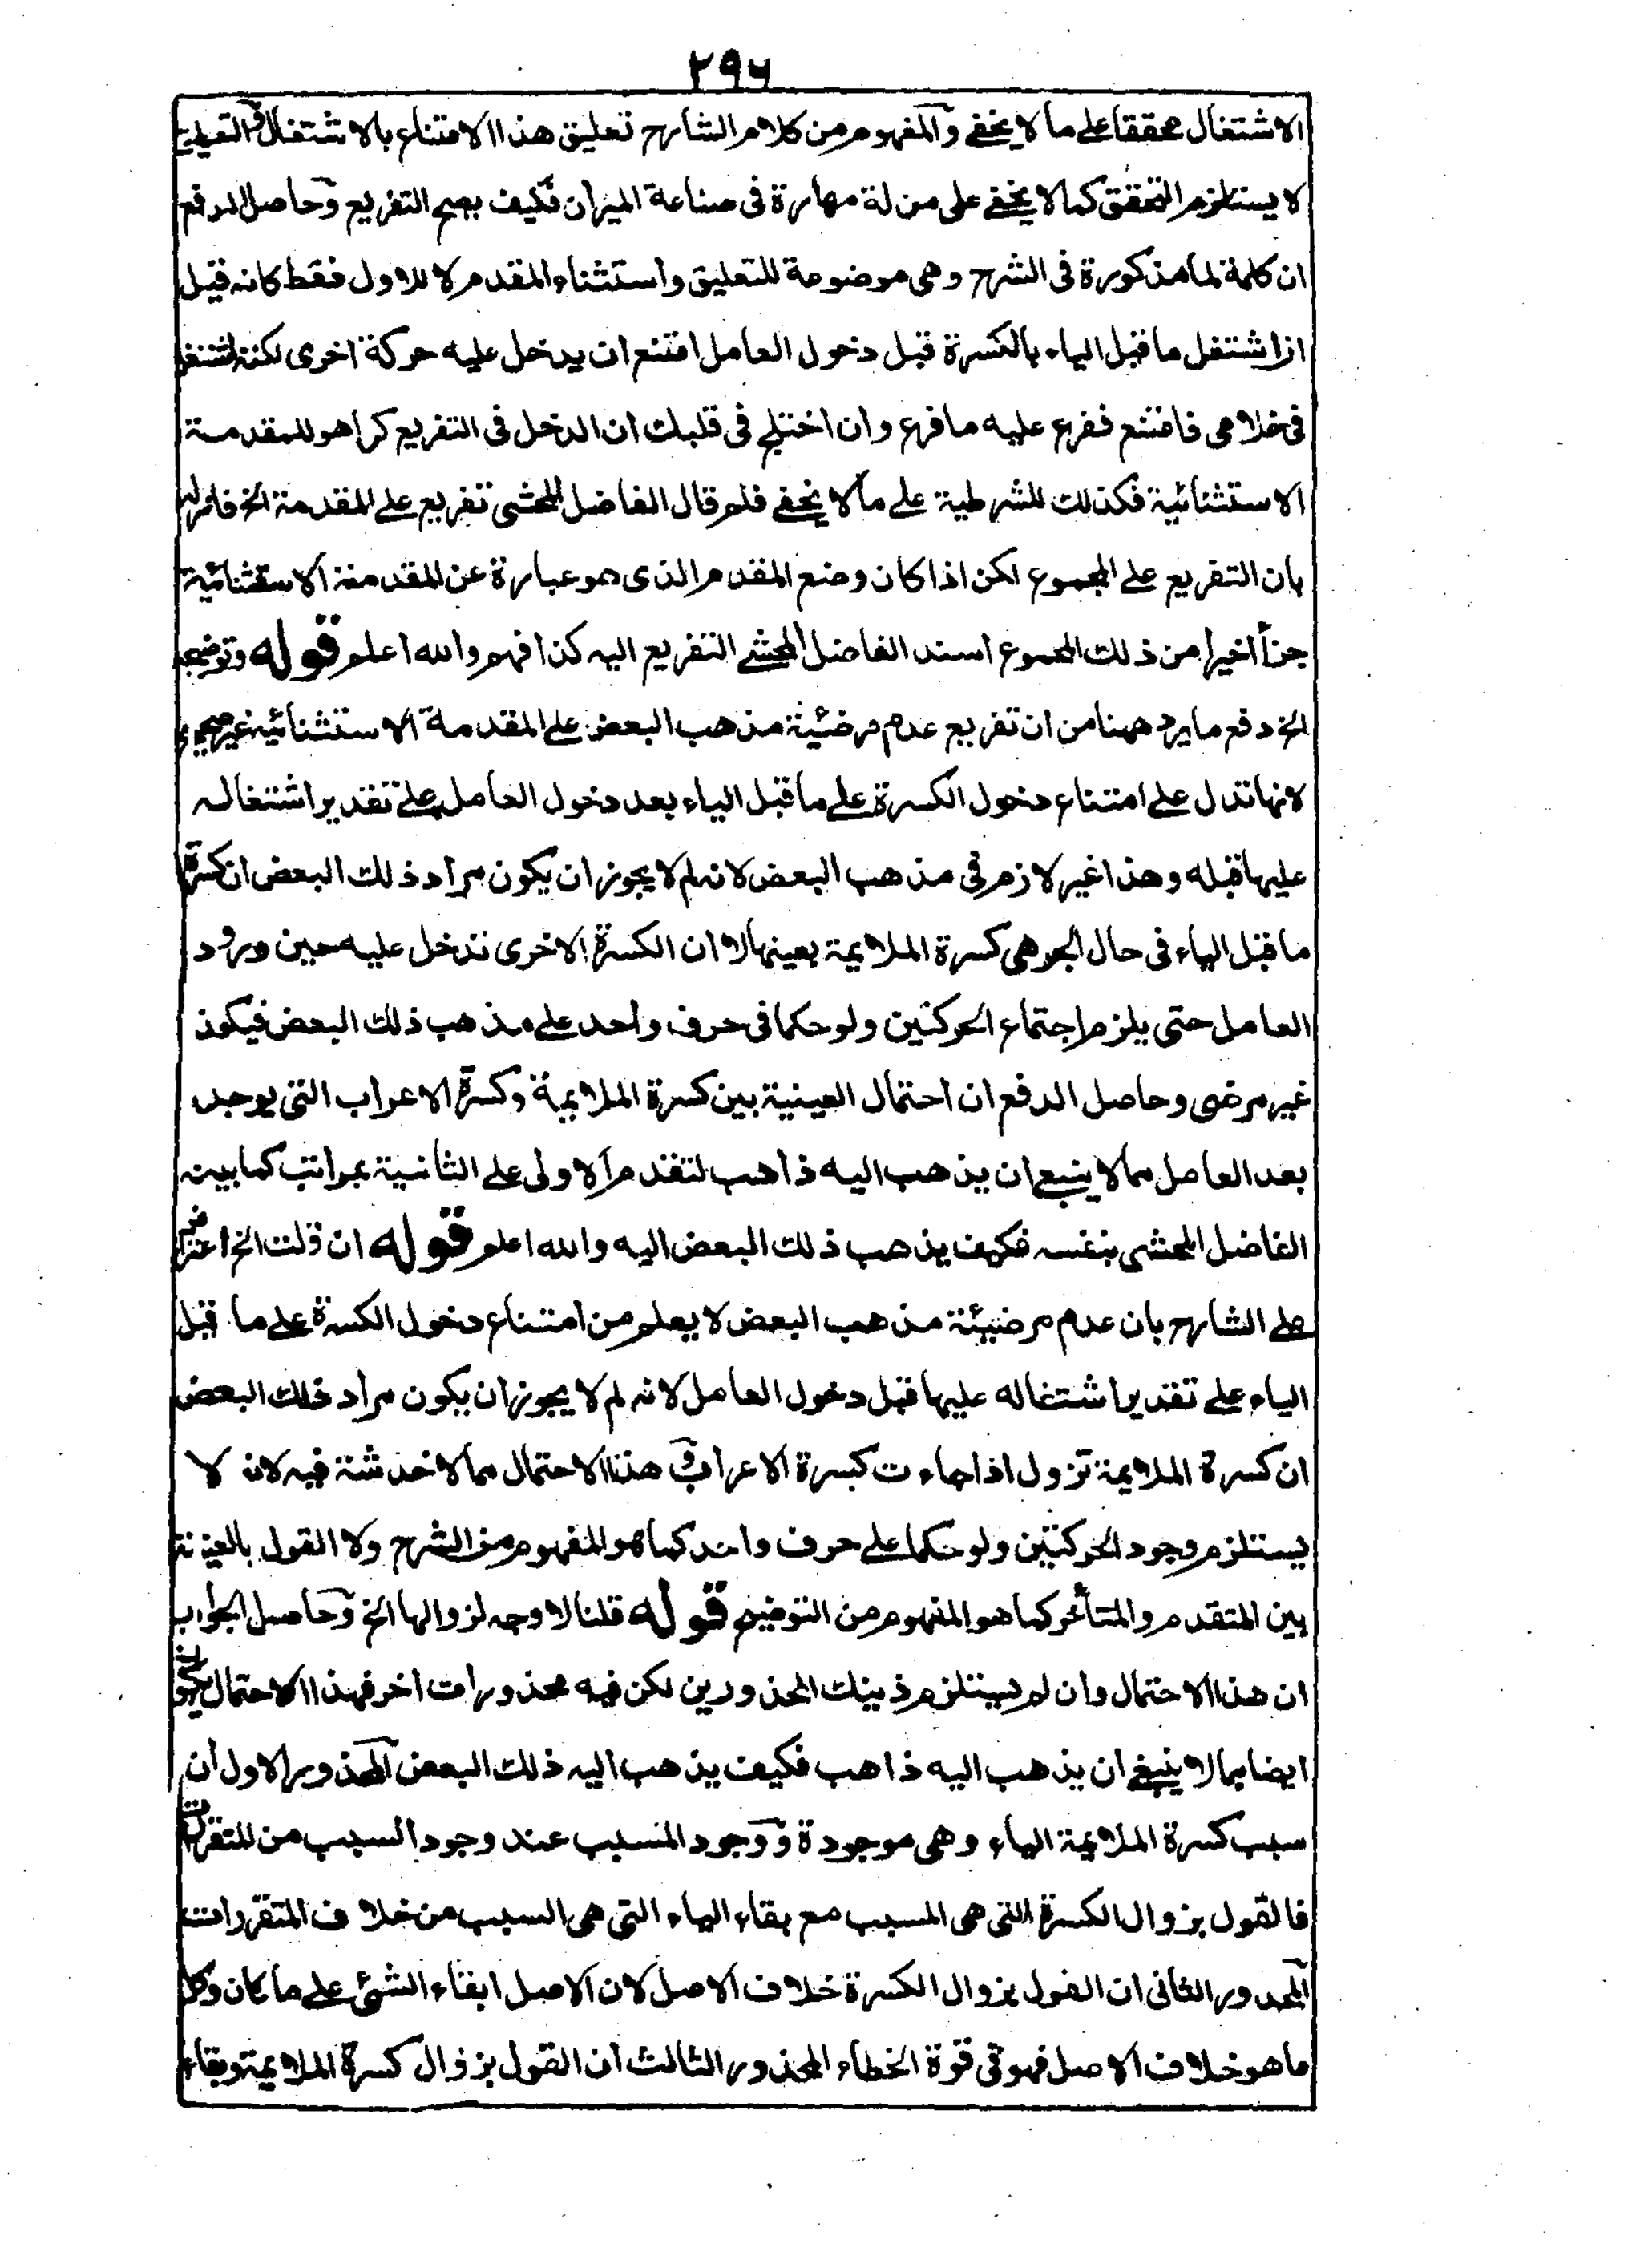 ٢٩٦
الاشتغال محققا على ما لا يخفى والمفهوم من كلام الشارح تعليق هذا الامتناع بالاشتغال والتعليق
لا يستلزم التحقق كما لا يخفى على من له مهارة فى صناعة الميزان فكيف يصح التفريع وحاصل الدفع
ان كلمة لما مذكورة فى الشرح وهى موضوعة للتعليق واستثناء المقدم لا للاول فقط كانه قيل
اذا اشتغل ما قبل الياء بالكسرة قبل دخول العامل امتنع ان يدخل عليه حركة اخرى لكنه اشتغل
فى غلامى فامتنع ففرع عليه ما فرع وان اختلج فى قلبك ان الدخل فى التفريع كما هو للمقدمة
الاستثنائية فكذلك للشرطية على ما لا يخفى فلم قال الفاضل المحشى تفريع على المقدمة الخ
بان التفريع على المجموع لكن اذا كان وضع المقدم الذى هو عبارة عن المقدمة الاستثنائية
جزأ اخيرا من ذلك المجموع اسند الفاضل المحشى التفريع اليه كذا افهم والله اعلم قوله وتوضيحه
الخ دفع ما يرد ههنا من ان تفريع عدم مرضئية مذهب البعض على المقدمة الاستثنائية غير صحيح
لانها تدل على امتناع دخول الكسرة على ما قبل الياء بعد دخول العامل على تقدير اشتغاله
عليها قبله وهذا غير لازم فى مذهب البعض لانه لم لا يجوز ان يكون مراد ذلك البعض ان كسرة
ما قبل الياء فى حال الجر هى كسرة الملايمة بعينها لا ان الكسرة الاخرى تدخل عليه حين ورود
العامل حتى يلزم اجتماع الحركتين ولو حكما فى حرف واحد على مذهب ذلك البعض فيكون
غير مرضى وحاصل الدفع ان احتمال العينية بين كسرة الملايمة وكسرة الاعراب التى يوجد
بعد العامل مما لا ينبغى ان يذهب اليه ذاهب لتقدم الاولى على الثانية بمراتب كما بينه
الفاضل المحشى بنفسه فكيف يذهب ذلك البعض اليه والله اعلم قوله ان قلت الخ اعتراض
على الشارح بان عدم مرضيئة مذهب البعض لا يعلم من امتناع دخول الكسرة على ما قبل
الياء على تقدير اشتغاله عليها قبل دخول العامل لانه لم لا يجوز ان يكون مراد ذلك البعض
ان كسرة الملايمة تزول اذا جاءت كسرة الاعراب وهذا الاحتمال مما لا خدشة فيه لانه لا
يستلزم وجود الحركتين ولو حكما على حرف واحد كما هو المفهوم من الشرح ولا القول بالعينية
بين المتقدم والمتأخر كما هو المفهوم من التوضيح قوله قلنا لا وجه لزوالها الخ وحاصل الجواب
ان هذا الاحتمال وان لم يستلزم ذينك المحذورين لكن فيه محذورات اخر فهذا الاحتمال يكون
ايضا مما لا ينبغى ان يذهب اليه ذاهب فكيف يذهب اليه ذلك البعض المحذور الاول ان
سبب كسرة الملايمة الياء وهى موجودة ووجود المسبب عند وجود السبب من المتقررات
فالقول بزوال الكسرة التى هى المسبب مع بقاء الياء التى هى السبب من خلاف المتقررات
المحذور الثانى ان القول بزوال الكسرة خلاف الاصل لان الاصل ابقاء الشئ على ما كان وكل
ما هو خلاف الاصل فهو فى قوة الخطاء المحذور الثالث ان القول بزوال كسرة الملايمة وبقاء